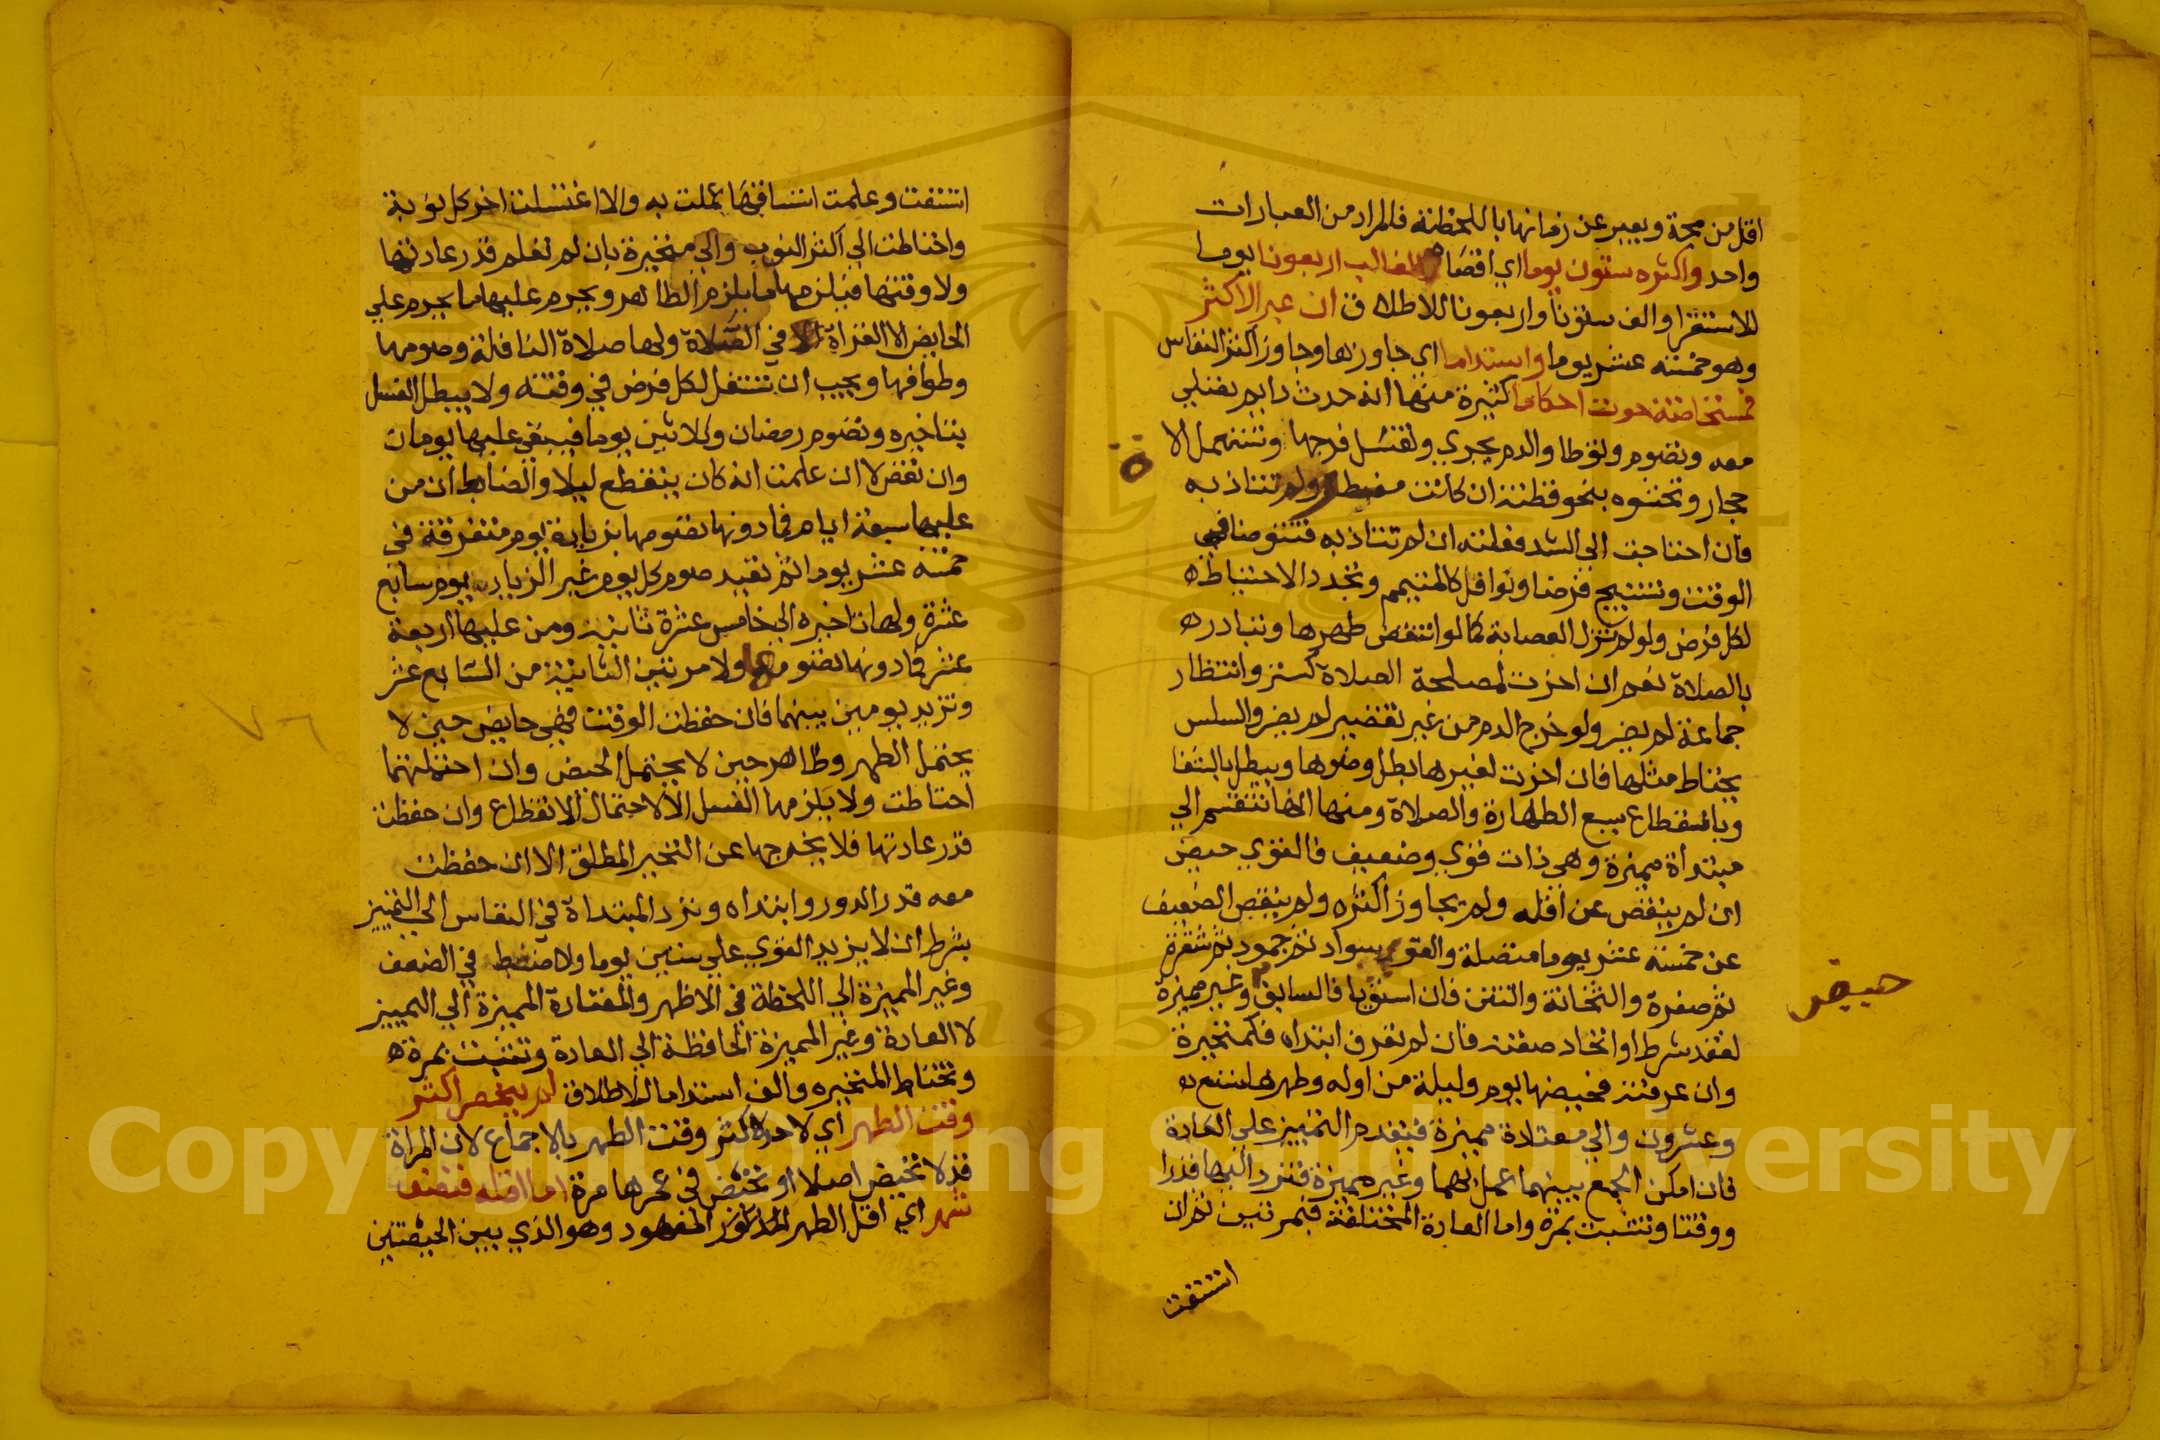 اقل من مجة ويعبر عن زمانها باللحظة فالمراد من العبارات
واحد واكثره ستون يوما اي اقصاه والغالب اربعونا يوما
للاستقرا والف ستونا واربعونا للاطلاق ان عبر الاكثر
وهو خمسة عشر يوما واستداما اي جاوزها وجاوز اكثر النفاس
فمستحاضة حوت احكاما كثيرة منها انه حدث دايم فتصلي
معه وتصوم وتوطا والدم يجري وتغسل فرجها وتستعمل الا
حجار وتحشوه بنحو قطنة ان كانت مفطرة ولم تتاذ به
فان احتاجت الي الشد فعلته ان لم تتاذ به فتتوضا في
الوقت وتستبيح فرضا ونوافل كالمتيمم وتجدد الاحتياط
لكل فرض ولو لم تزل العصابة كما لو انتقض طهرها وتبادر
بالصلاة نعم ان اخرت لمصلحة الصلاة كستر وانتظار
جماعة لم يضر ولو خرج الدم من غير تقصير لم يضر والسلس
يحتاط مثلها فان اخرت لغيرها بطل وضوها ويبطل بالشفا
وبانقطاع يسع الطهارة والصلاة ومنها انها تنقسم الي
مبتداة مميزة وهي ذات قوي وضعيف فالقوي حيض
ان لم ينقص عن اقله ولم يجاوز اكثره ولم ينقص الضعيف
عن خمسة عشر يوما متصلة والقوي سواد ثم حمرة ثم شقرة
ثم صفرة والثخانة والنتن فان استويا فالسابق وغير مميزة
لفقد شرط او اتحاد صفته فان لم تعرف ابتداه فكمتحيرة
وان عرفته فحيضها يوم وليلة من اوله وطهرها تسع
وعشرون والي معتادة مميزة فيقدم التمييز علي العادة
فان امكن الجمع بينهما عمل بهما وغير مميزة فترد اليها قدرا
ووقتا وتثبت بمرة واما العادة المختلفة فبمرتين ثم ان
اتسقت
اتسقت وعلمت اتساقها عملت به والا اغتسلت اخر كل نوبة
واحتاطت الي اكثر النوب والي متحيرة بان لم تعلم قدر عادتها
ولا وقتها فيلزمها ما يلزم الطاهر ويحرم عليها ما يحرم علي
الحايض الا القراة في الصلاة ولها صلاة النافلة وصومها
وطوافها ويجب ان تغتسل لكل فرض في وقته ولا يبطل الغسل
بتاخيره وتصوم رمضان وثلاثين يوما فيبقي عليها يومان
وان نقص لا ان علمت انه كان ينقطع ليلا والضابط ان من
عليها سبعة ايام فما دونها تصومها بزيادة يوم متفرقة في
خمسة عشر يوما ثم تعيد صوم كل يوم غير الزيادة يوم سابع
عشرة ولها تاخيره الي خامس عشرة ثانية ومن عليها اربعة
عشر فما دونها تصومها ولا مرتين الثانية من السابع عشر
وتزيد يومين بينهما فان حفظت الوقت فهي حايض حين لا
يحتمل الطهر وطاهر حين لا يحتمل الحيض وان احتملتهما
احتاطت ولا يلزمها الغسل الا لاحتمال الانقطاع وان حفظت
قدر عادتها فلا يخرجها عن التحير المطلق الا ان حفظت
معه قدر الدور وابتداه وترد المبتداة في النفاس الي التمييز
بشرط ان لا يزيد القوي علي ستين يوما ولا ضبط في الضعف
وغير المميزة الي اللحظة في الاظهر والمعتادة المميزة الي التمييز
لا العادة وغير المميزة الحافظة الي العادة وتثبت بمرة
وتحتاط المتحيره والف استداما للاطلاق لم ينحصر اكثر
وقت الطهر اي لا حد لاكثر وقت الطهر بالاجماع لان المراة
قد لا تحيض اصلا او تحيض في عمرها مرة اما اقله فنصف
شهر اي اقل الطهر المذكور المعهود وهو الذي بين الحيضتين